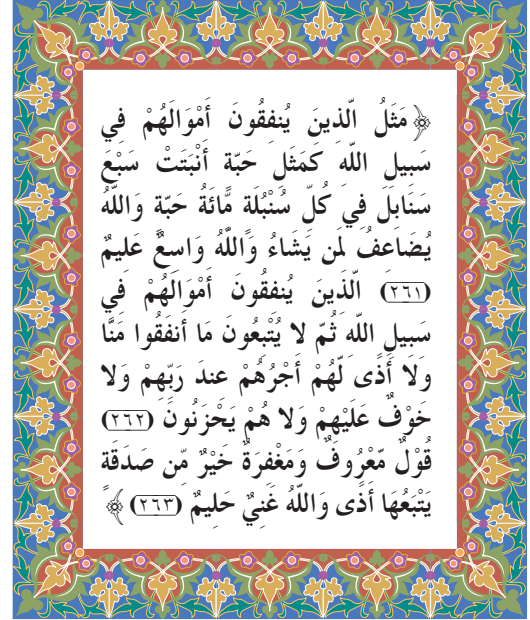 ﴿ مَثَلُ الَّذِينَ يُنفِقُونَ أَمْوَالَهُمْ فِي
سَبِيلِ اللَّهِ كَمَثَلِ حَبَّةٍ أَنْبَتَتْ سَبْعَ
سَنَابِلَ فِي كُلِّ سُنْبُلَةٍ مِّائَةُ حَبَّةٍ وَاللَّهُ
يُضَاعِفُ لِمَن يَشَاءُ وَاللَّهُ وَاسِعٌ عَلِيمٌ
(٢٦١) الَّذِينَ يُنفِقُونَ أَمْوَالَهُمْ فِي
سَبِيلِ اللَّهِ ثُمَّ لا يُتْبِعُونَ مَا أَنفَقُوا مَنًّا
وَلا أَذًى لَّهُمْ أَجْرُهُمْ عِندَ رَبِّهِمْ وَلا
خَوْفٌ عَلَيْهِمْ وَلا هُمْ يَحْزَنُونَ (٢٦٢)
قَوْلٌ مَّعْرُوفٌ وَمَغْفِرَةٌ خَيْرٌ مِّن صَدَقَةٍ
يَتْبَعُهَا أَذًى وَاللَّهُ غَنِيٌّ حَلِيمٌ (٢٦٣) ﴾